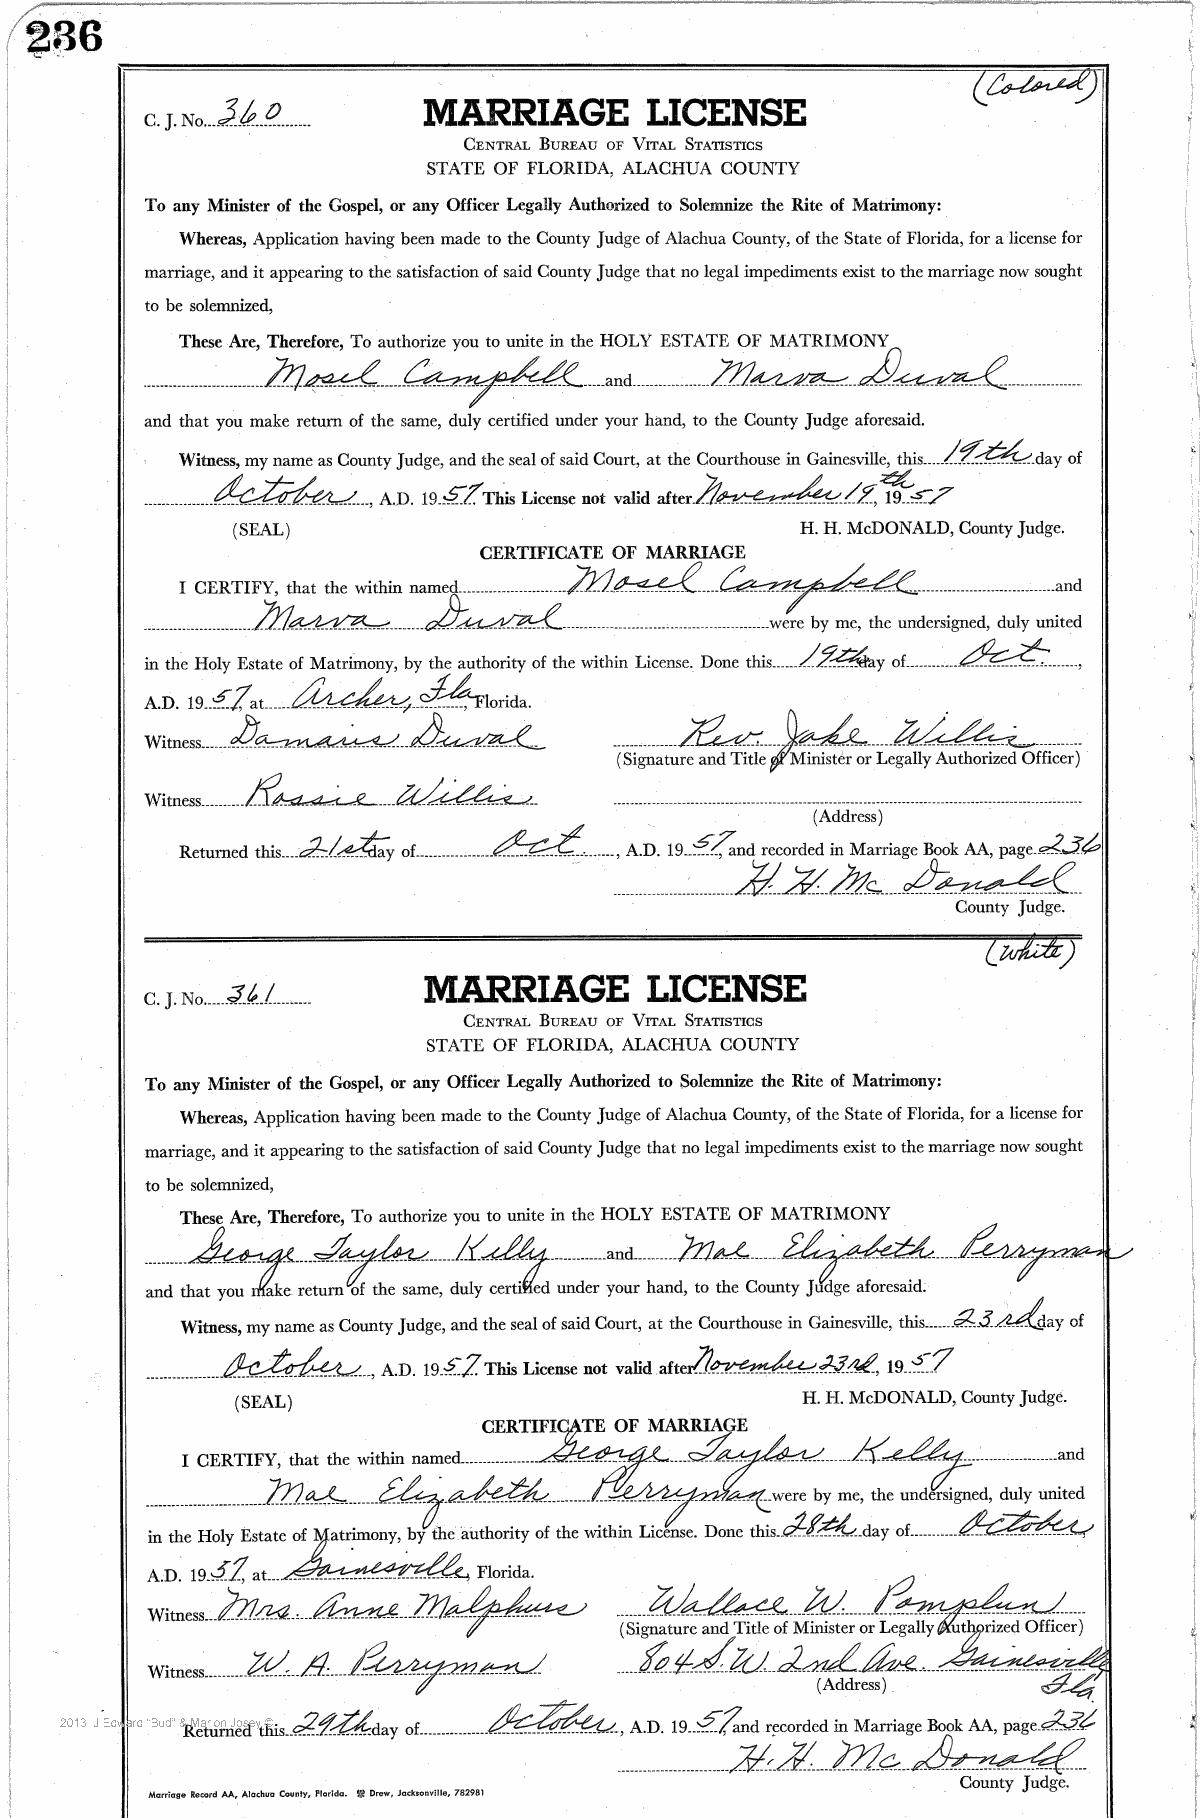 236
(Colored)
C. J. No. 360 MARRIAGE LICENSE
CENTRAL BUREAU OF VITAL STATISTICS
STATE OF FLORIDA, ALACHUA COUNTY
To any Minister of the Gospel, or any Officer Legally Authorized to Solemnize the Rite of Matrimony:
Whereas, Application having been made to the County Judge of Alachua County, of the State of Florida, for a license for
marriage, and it appearing to the satisfaction of said County Judge that no legal impediments exist to the marriage now sought
to be solemnized,
These Are, Therefore, To authorize you to unite in the HOLY ESTATE OF MATRIMONY
Mosel Campbell and Marva Duval
and that you make return of the same, duly certified under your hand, to the County Judge aforesaid.
Witness, my name as County Judge, and the seal of said Court, at the Courthouse in Gainesville, this 19th day of
October, A.D. 1957. This License not valid after November 19th, 1957
(SEAL) H. H. McDONALD, County Judge.
CERTIFICATE OF MARRIAGE
I CERTIFY, that the within named Mosel Campbell and
Marva Duval were by me, the undersigned, duly united
in the Holy Estate of Matrimony, by the authority of the within License. Done this 19th day of Oct.,
A.D. 1957, at Archer, Fla, Florida.
Witness Damaris Duval Rev. Jake Willis
(Signature and Title of Minister or Legally Authorized Officer)
Witness Rossie Willis
(Address)
Returned this 21st day of Oct., A.D. 1957, and recorded in Marriage Book AA, page 236
H. H. McDonald
County Judge.
(White)
C. J. No. 361 MARRIAGE LICENSE
CENTRAL BUREAU OF VITAL STATISTICS
STATE OF FLORIDA, ALACHUA COUNTY
To any Minister of the Gospel, or any Officer Legally Authorized to Solemnize the Rite of Matrimony:
Whereas, Application having been made to the County Judge of Alachua County, of the State of Florida, for a license for
marriage, and it appearing to the satisfaction of said County Judge that no legal impediments exist to the marriage now sought
to be solemnized,
These Are, Therefore, To authorize you to unite in the HOLY ESTATE OF MATRIMONY
George Taylor Kelly and Mae Elizabeth Perryman
and that you make return of the same, duly certified under your hand, to the County Judge aforesaid.
Witness, my name as County Judge, and the seal of said Court, at the Courthouse in Gainesville, this 23rd day of
October, A.D. 1957. This License not valid after November 23rd, 1957
(SEAL) H. H. McDONALD, County Judge.
CERTIFICATE OF MARRIAGE
I CERTIFY, that the within named George Taylor Kelly and
Mae Elizabeth Perryman were by me, the undersigned, duly united
in the Holy Estate of Matrimony, by the authority of the within License. Done this 28th day of October,
A.D. 1957, at Gainesville, Florida.
Witness Mrs. Anne Malphurs Wallace W. Pomplun
(Signature and Title of Minister or Legally Authorized Officer)
Witness W. A. Perryman 804 S.W. 2nd Ave. Gainesville
(Address) Fla.
2013 J Edward "Bud" & Marion Josey ©
Returned this 29th day of October, A.D. 1957, and recorded in Marriage Book AA, page 236
H. H. McDonald
County Judge.
Marriage Record AA, Alachua County, Florida. Drew, Jacksonville, 782981